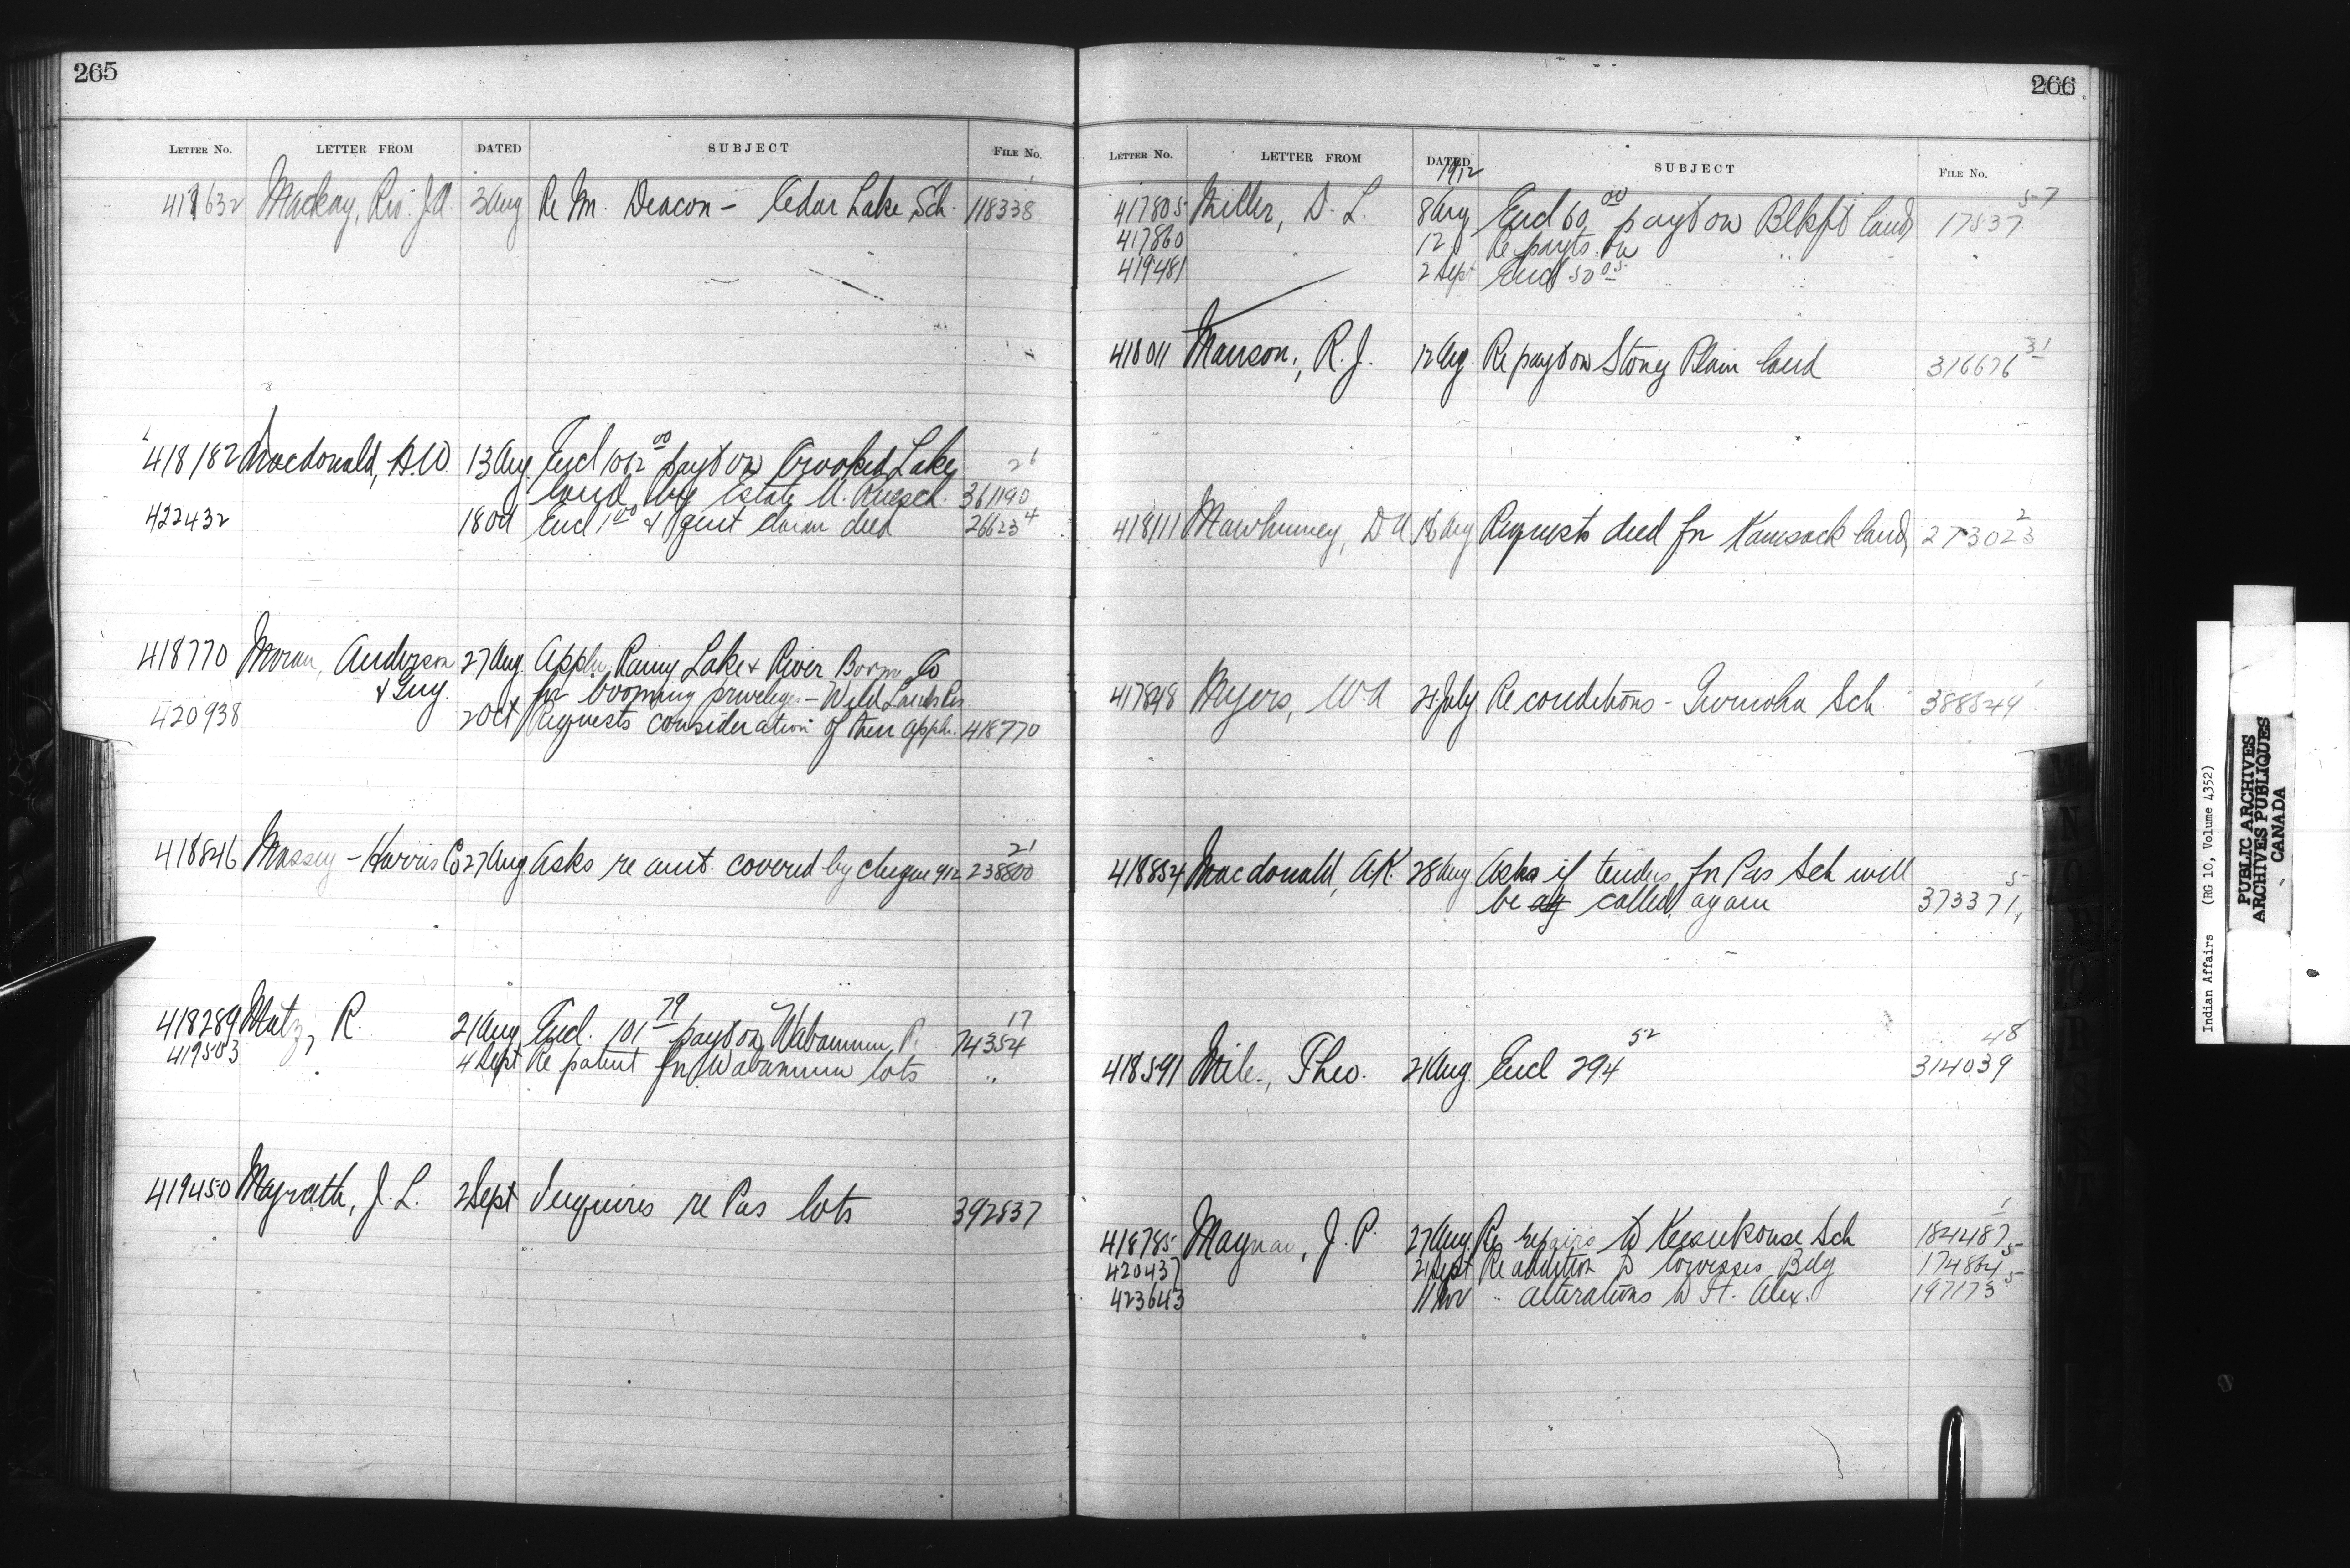 265
LETTER NO. LETTER FROM DATED SUBJECT FILE NO.
417632 Mackay, Rev. J.A. 3 Aug Re M. Deacon - Cedar Lake Sch. 118338
418182 Macdonald, A.W. 13 Aug Encl 1012 00 payt on Crooked Lake 26
land by Estate 361190
422432 18 Oct Encl 1 00 & quit claim deed 26623 4
418770 Moran, Anderson 27 Aug. Appln. Rainy Lake & River Boom Co
& Guy. for booming privileges - Wild Lands Res.
420938 2 Oct Requests consideration of their appln. 418770
21
418846 Massey-Harris Co 27 Aug Asks re amt. covered by cheque 912 238800
418289 Mutz, R. 21 Aug Encl. 101 79 payt on Wabamun 17 74354
419503 4 Sept Re patent for Wabamun lots "
419450 Mayrath, J. L. 2 Sept Inquires re Pas lots 392837
266
LETTER NO. LETTER FROM DATED 1912 SUBJECT FILE NO.
417805 Miller, D. L. 8 Aug Encl 60 00 payt on Blkft land 17537 5-7
417860 12 " Re payts. on " "
419481 2 Sept Encl 50 05 " "
418011 Manson, R. J. 12 Aug. Re payt on Stony Plain land 316676 31
418111 Mawhinney, D A 16 Aug Requests deed for Kamsack land 273023 2
417848 Myers, W.A 24 July Re conditions - Sch. 388849 1
418884 Macdonald, A.K. 28 Aug Asks if tenders for Pas Sch will
be ag called again 373371 5
418591 Miles, Theo. 21 Aug. Encl 294 52 314039 48
418785 Magnan, J. P. 27 Aug. Re repairs to Keesekouse Sch 184487 1
420437 21 Sept Re addition to Cowesses Bdg 174864 5
423643 11 Nov " alterations to Ft. Alex. 197173 5
M
N
O
P
Q
R
S
T
Indian Affairs (RG 10, Volume 4352)
PUBLIC ARCHIVES
ARCHIVES PUBLIQUES
CANADA